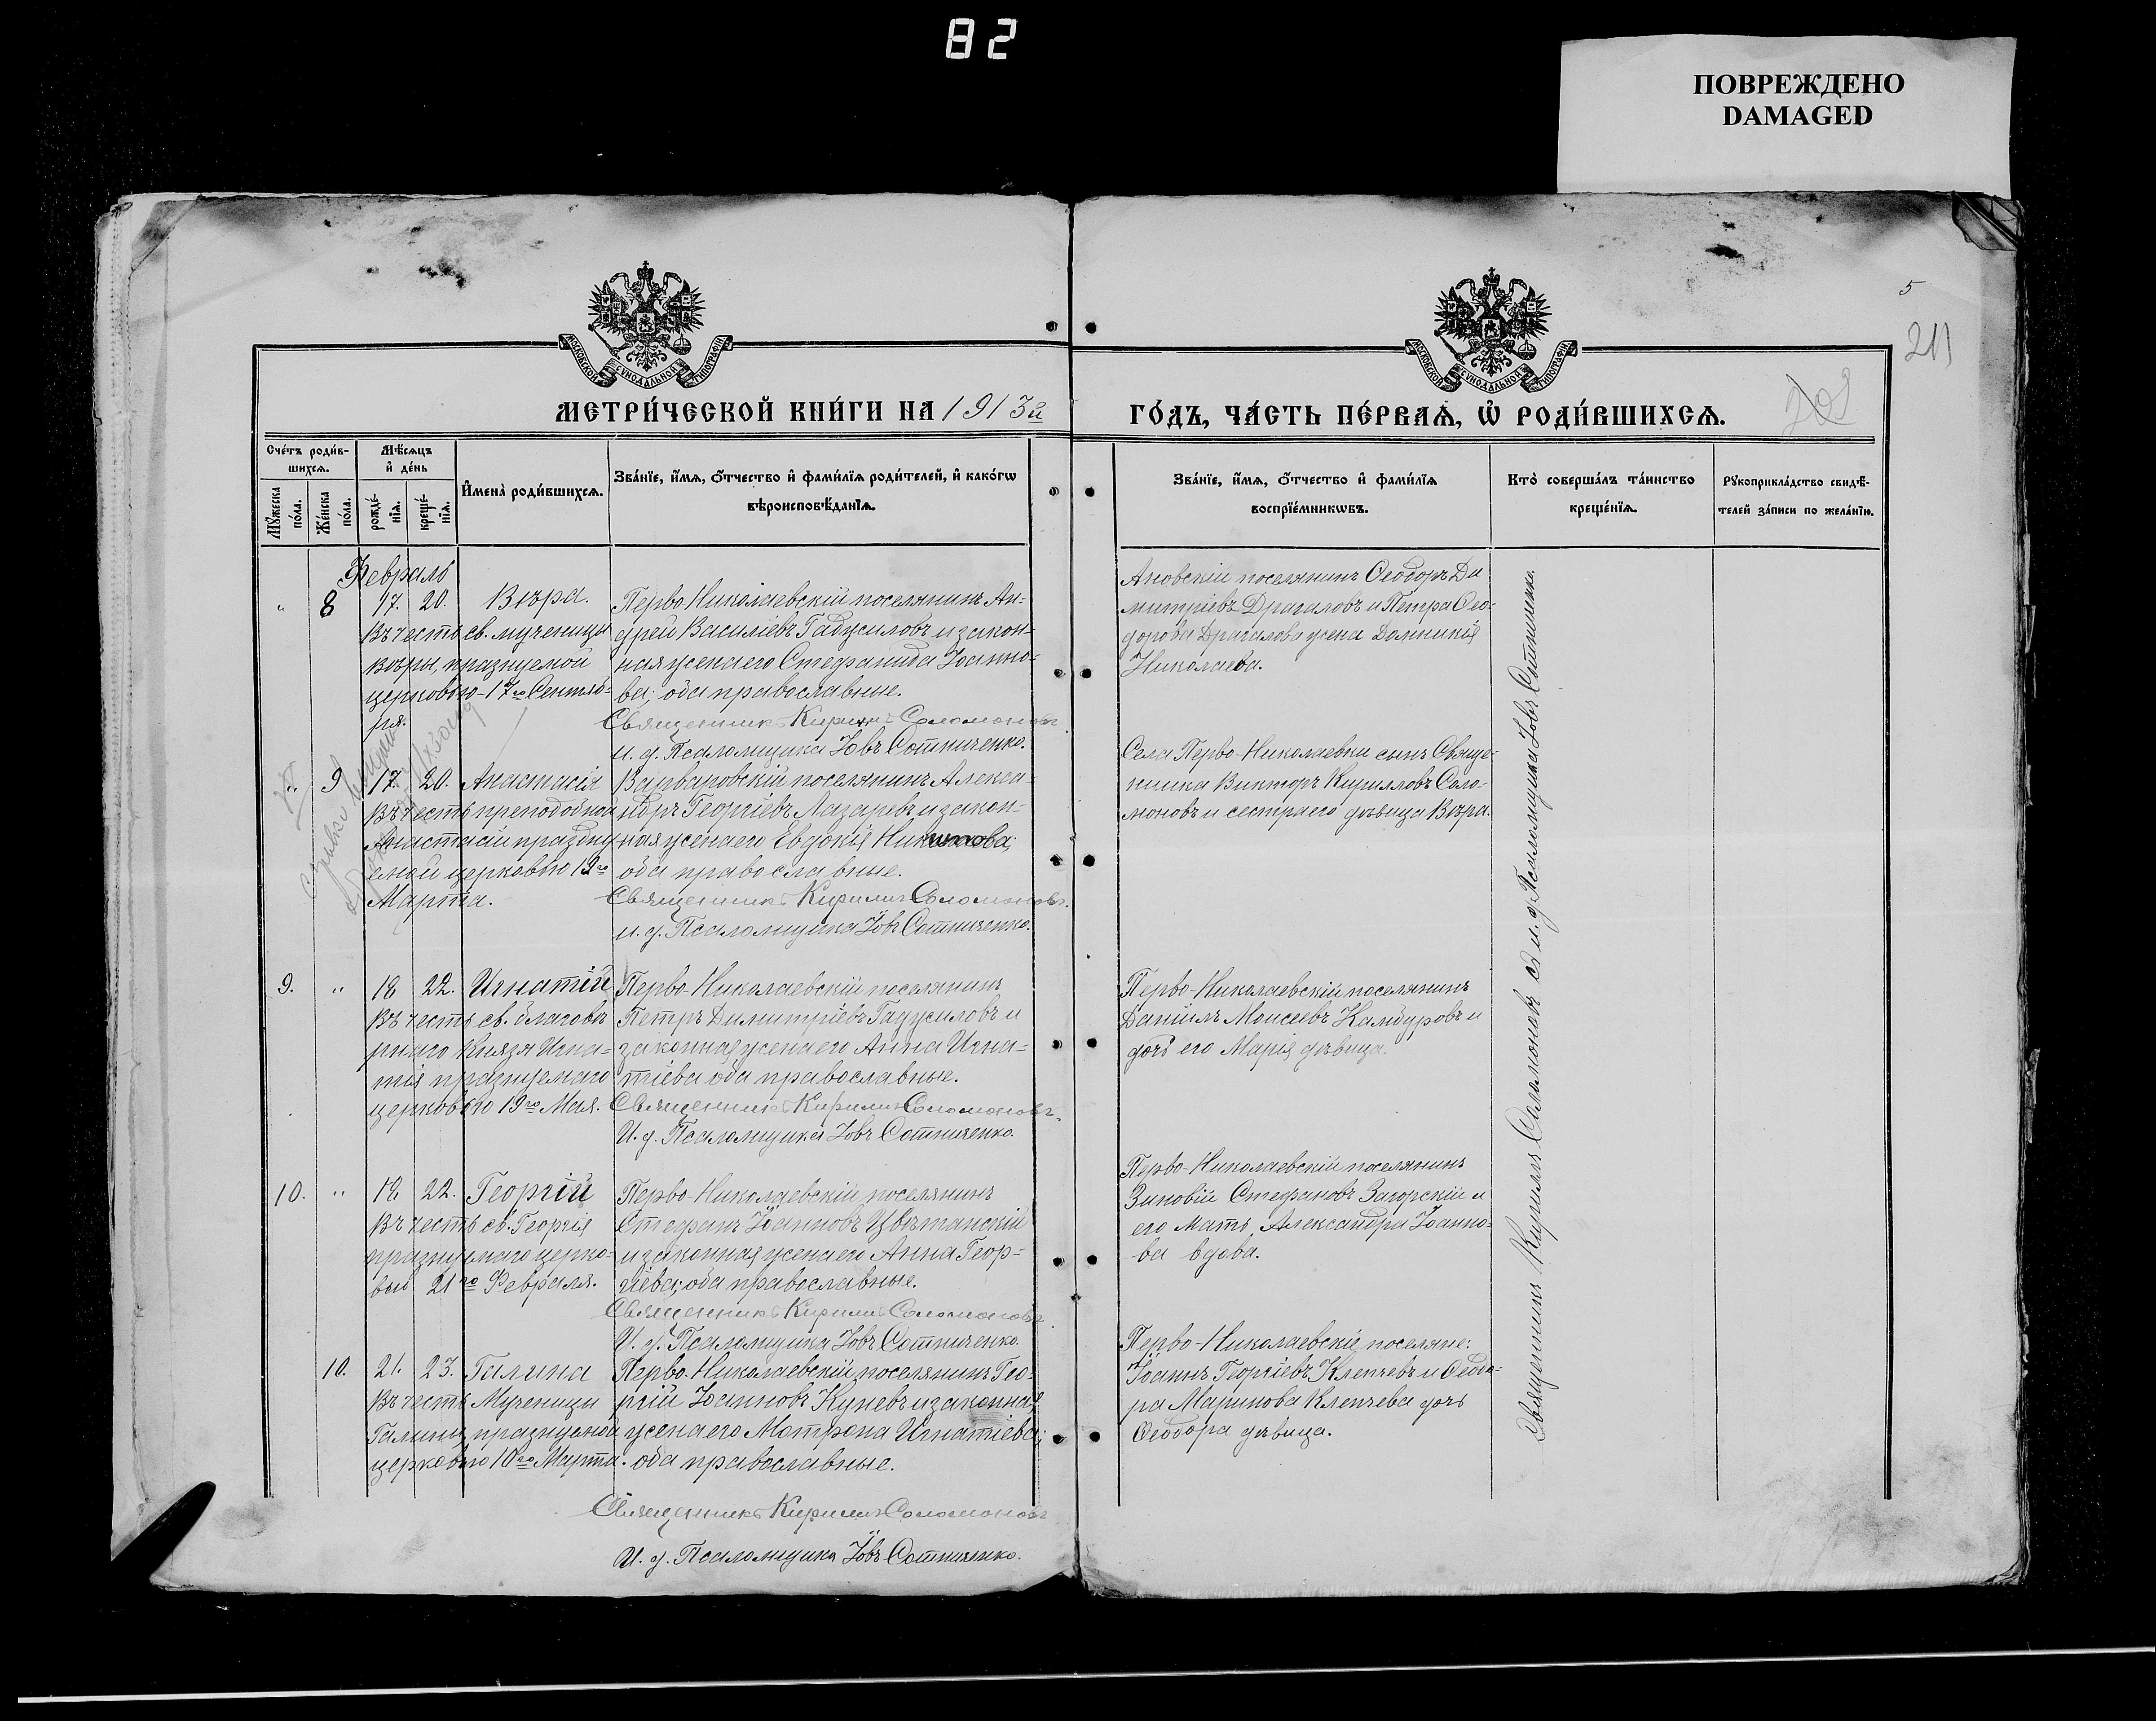 82
ПОВРЕЖДЕНО
DAMAGED
5
211
МОСКОВСКОЙ СѴНОДАЛЬНОЙ ТИПОГРАФІИ
МОСКОВСКОЙ СѴНОДАЛЬНОЙ ТИПОГРАФІИ
МЕТРИ́ЧЕСКОЙ КНИ́ГИ НА 1913й
ГО́ДЪ, ЧА́СТЬ ПЕ́РВАѦ, Ѡ РОДИ́ВШИХСѦ.
Сче́тъ роди́в-
шихсѧ.
Мѣ́сѧцъ
и де́нь
Мꙋ́жеска
по́ла.
Же́нска
по́ла.
рожде́-
нїѧ.
креще́-
нїѧ.
Имена̀ роди́вшихсѧ.
Зва́нїе, и́мѧ, ѻ́тчество и фами́лїѧ роди́телей, и како́гѡ
вѣроисповѣ́данїѧ.
Зва́нїе, и́мѧ, ѻ́тчество и фами́лїѧ
воспрїе́мникѡвъ.
Кто̀ соверша́лъ та́инство
креще́нїѧ.
Рꙋкоприкла́дство свидѣ́-
телей за́писи по жела́нїю.
Февраль
" 8 17. 20. Вѣра.
Въ честь св. мученицы
Вѣры, празнуемой
церковью 17го Сентяб-
ря.
Перво-Николаевскій поселянинъ Ан-
дрей Василіевъ Гадусиловъ и закон-
ная жена его Стефанида Іоанно-
ва; оба православные.
Священникъ Кирилъ Соломоновъ
и. д. Псаломщика Іовъ Сотниченко.
поселянинъ Ѳеодоръ Ди
митріевъ Драгаловъ и Петра Ѳео-
дорова Драгалова жена Домникія
Николаева.
" 9 17. 20. Анастасія
Въ честь преподобной
Анастасіи праздну-
емой церковью 19го
Марта.
Варваровскій поселянинъ Алекса-
ндръ Георгіевъ Лазаревъ и закон-
ная жена его Евдокія
оба православные.
Священникъ Кирилъ Соломоновъ.
и. д. Псаломщика Іовъ Сотниченко.
Села Перво-Николаевки сынъ Свяще-
нника Викторъ Кирилловъ Соло-
моновъ и сестра его дѣвица Вѣра.
9. " 18 22. Игнатій
Въ честь св. благовѣ
рнаго Князя Игна-
тія празнуемаго
церковью 19го Мая.
Перво-Николаевскій поселянинъ
Петръ Димитріевъ Гадусиловъ и
законная жена его Анна Игна-
тіева оба православные.
Священникъ Кирилъ Соломоновъ.
И. д. Псаломщика Іовъ Сотниченко.
Перво-Николаевскій поселянинъ
Даніилъ Моисеевъ Камбуровъ и
дочь его Марія дѣвица.
10. " 18 22. Георгій
Въ честь св. Георгія
празнуемаго церко-
вью 21го Февраля.
Перво-Николаевскій поселянинъ
Стефанъ Іоанновъ Цвѣтанскій
и законная жена его Анна Геор-
гіева; оба православные.
Священникъ Кирилъ Соломоновъ.
И. д. Псаломщика Іовъ Сотниченко.
Перво-Николаевскій поселянинъ
Зиновій Стефановъ Загорскій и
его мать Александра Іоанно-
ва вдова.
10. 21. 23. Галина
Въ честь Мученицы
Галины, празнуемой
церковью 10го Марта.
Перво-Николаевскій поселянинъ Гео-
ргій Іоанновъ Куневъ и законная
жена его Матрона Игнатіева;
оба православные.
Священникъ Кирилъ Соломоновъ
И. д. Псаломщика Іовъ Сотниченко.
Перво-Николаевскіе поселяне:
Іоаннъ Георгіевъ Клепчевъ и Ѳеодо-
ра Маринова Клепчева дочь
Ѳеодора дѣвица.
Священникъ Кирилъ Соломоновъ съ и. д. Псаломщика Іовъ Сотниченко.